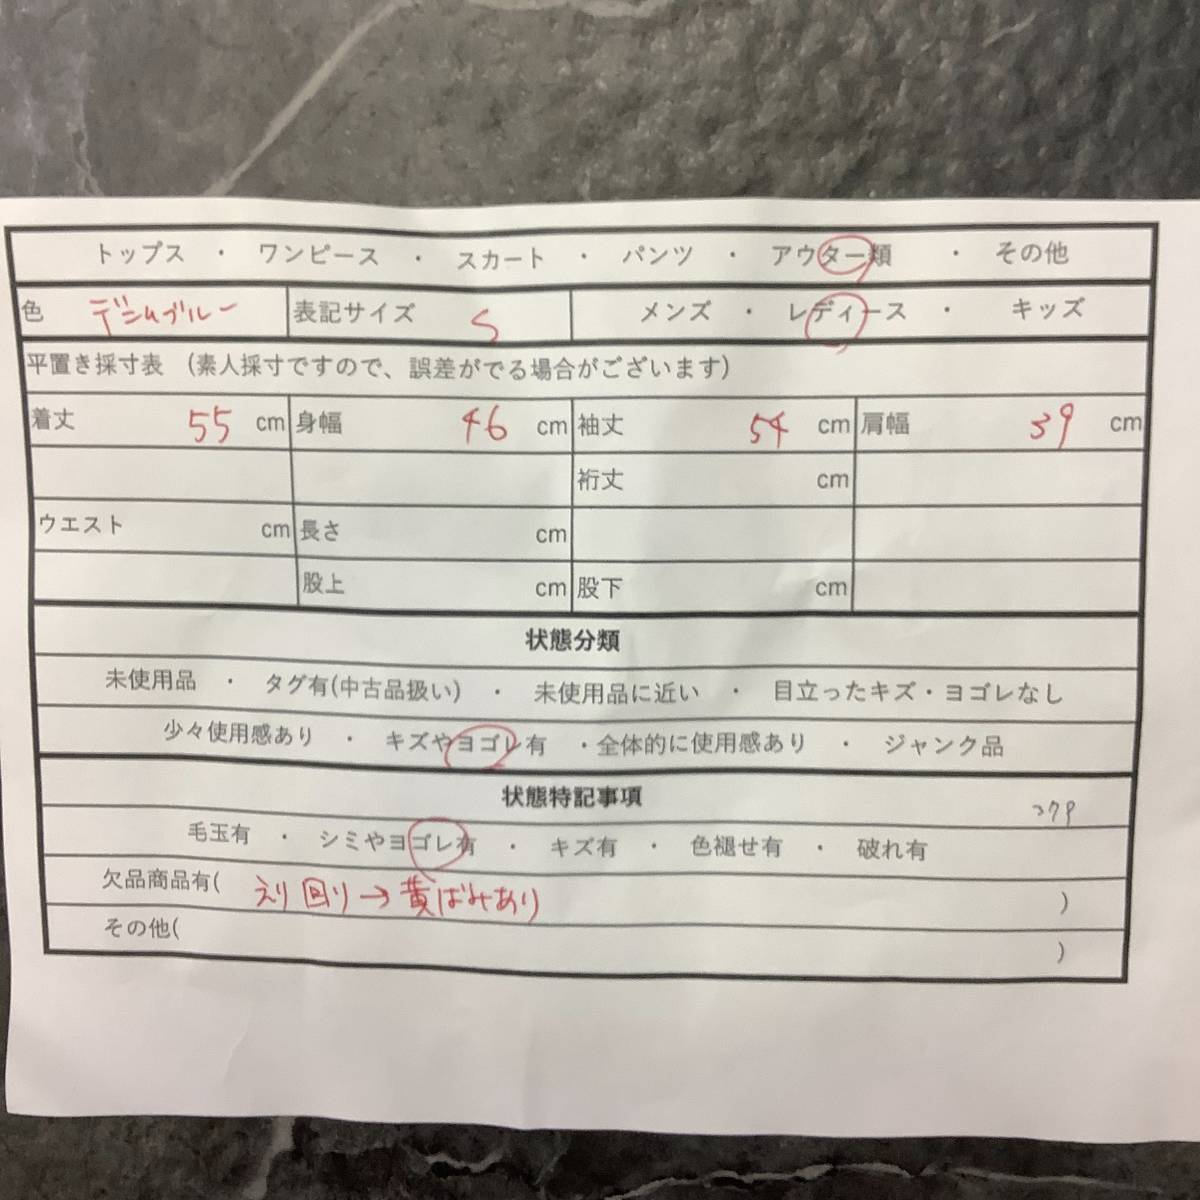 トップス ・ ワンピース ・ スカート ・ パンツ ・ アウター類 ・ その他
色 デニムブルー 表記サイズ S メンズ ・ レディース ・ キッズ
平置き採寸表 (素人採寸ですので、誤差がでる場合がございます)
着丈 55 cm 身幅 46 cm 袖丈 54 cm 肩幅 39 cm
裄丈 cm
ウエスト cm 長さ cm
股上 cm 股下 cm
状態分類
未使用品 ・ タグ有(中古品扱い) ・ 未使用品に近い ・ 目立ったキズ・ヨゴレなし
少々使用感あり ・ キズやヨゴレ有 ・全体的に使用感あり ・ ジャンク品
状態特記事項
379
毛玉有 ・ シミやヨゴレ有 ・ キズ有 ・ 色褪せ有 ・ 破れ有
欠品商品有( えり回り→黄ばみあり )
その他( )